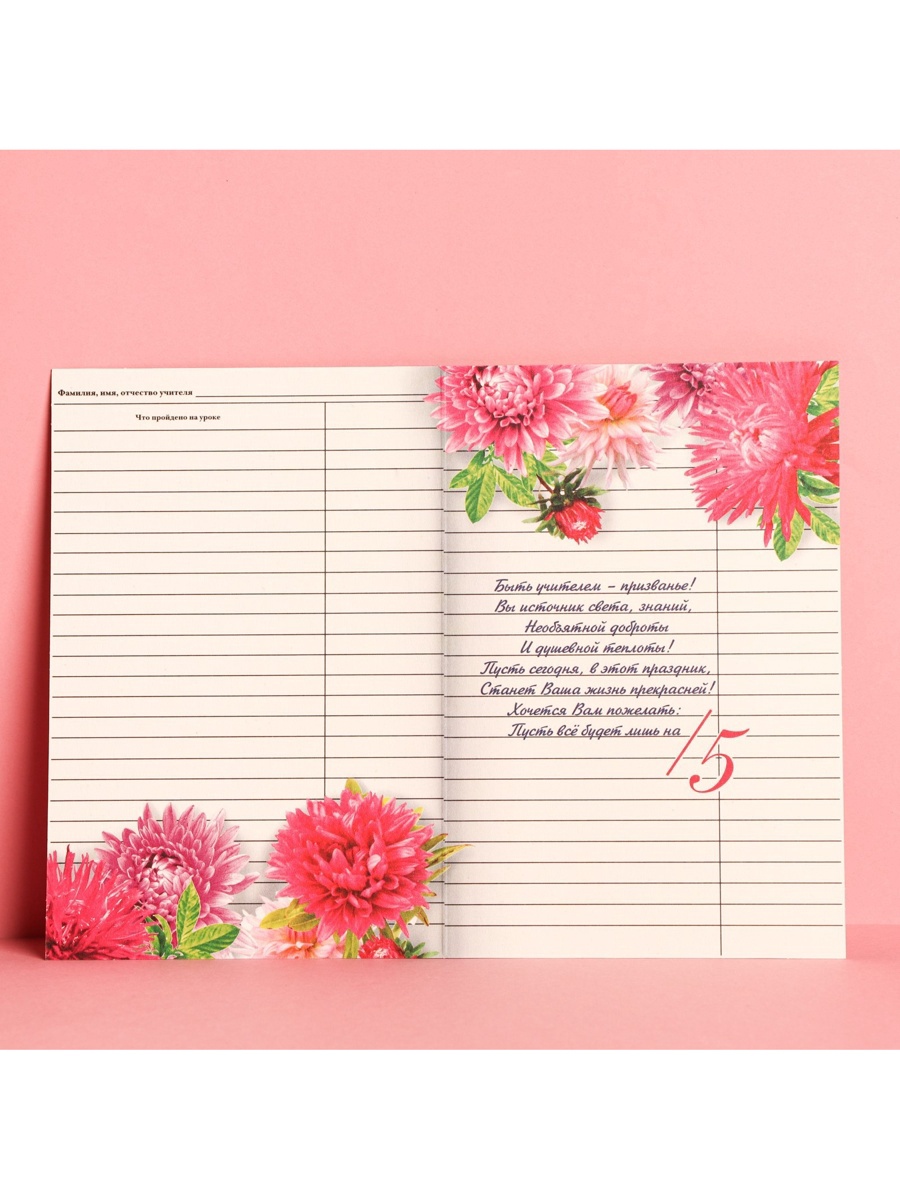 Фамилия, имя, отчество учителя
Что пройдено на уроке
Быть учителем – призванье!
Вы источник света, знаний,
Необъятной доброты
И душевной теплоты!
Пусть сегодня, в этот праздник,
Станет Ваша жизнь прекрасней!
Хочется Вам пожелать:
Пусть всё будет лишь на
/5